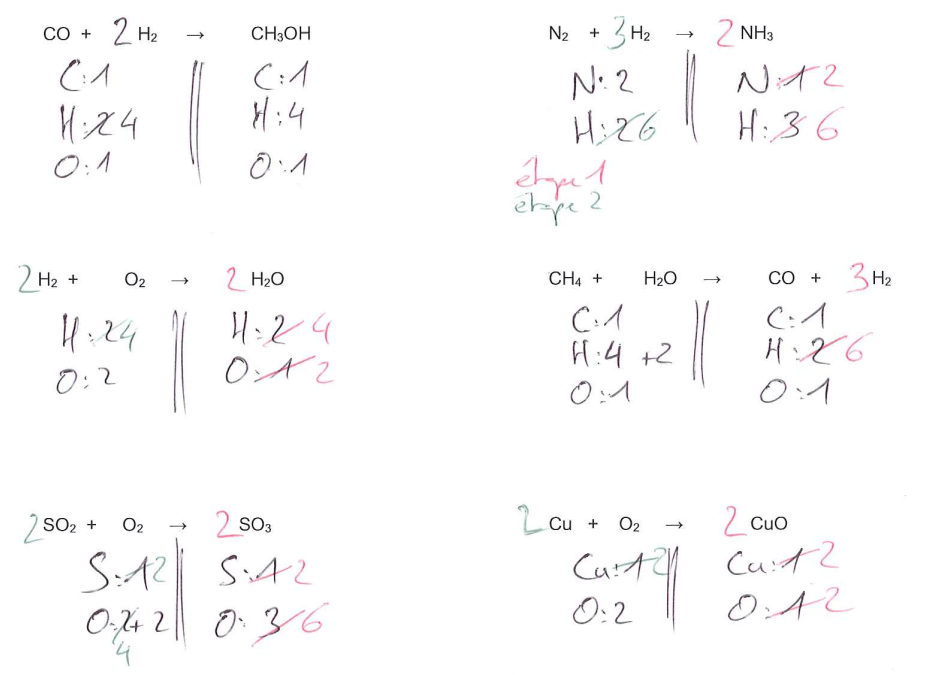 CO + 2 H₂ → CH₃OH
C:1 C:1
H:2 4 H:4
O:1 O:1
N₂ + 3 H₂ → 2 NH₃
N:2 N:1 2
H:2 6 H:3 6
étape 1
étape 2
2 H₂ + O₂ → 2 H₂O
H:2 4 H:2 4
O:2 O:1 2
CH₄ + H₂O → CO + 3 H₂
C:1 C:1
H:4 +2 H:2 6
O:1 O:1
2 SO₂ + O₂ → 2 SO₃
S:1 2 S:1 2
O:2 + 2 O:3 6
4
2 Cu + O₂ → 2 CuO
Cu:1 2 Cu:1 2
O:2 O:1 2